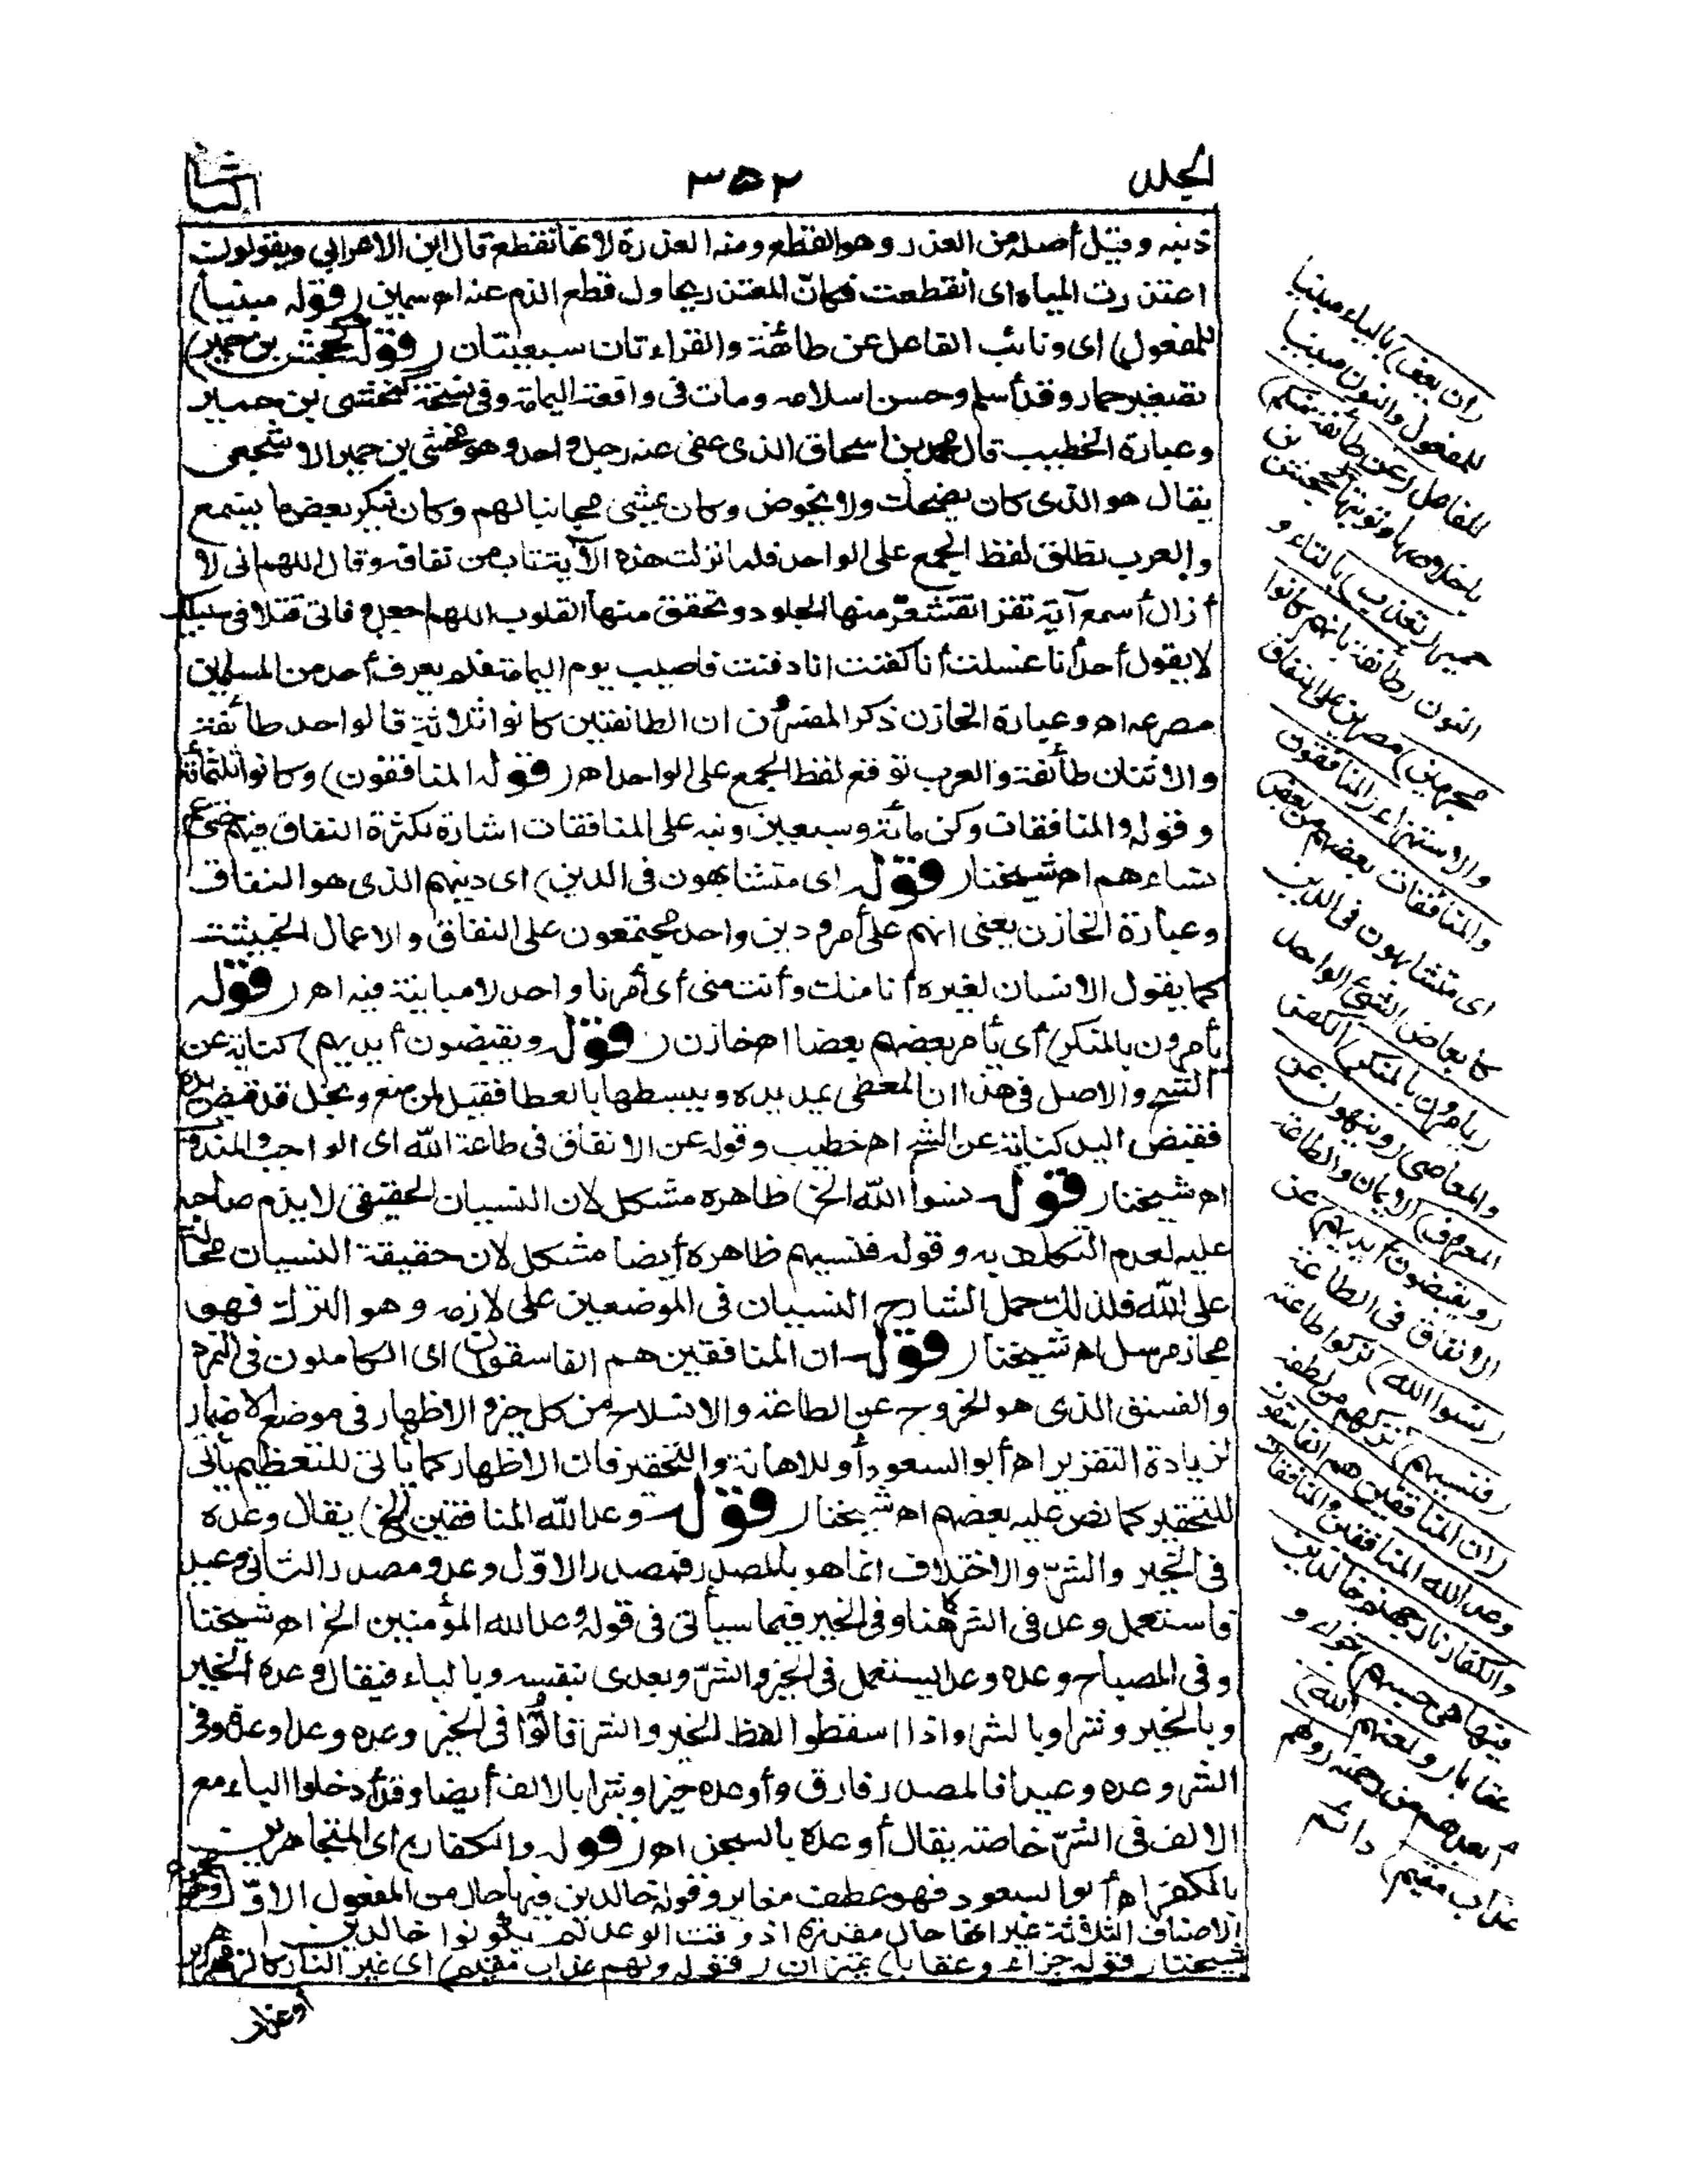 الجلد
٣٥٢
الثانى
ذنبه وقيل أصله من العذر وهو القطع ومنه العذرة لانها تقطع قال ابن الاعرابي ويقولون
اعتذرت المياه اى انقطعت فكأنّ المعتذر يحاول قطع الذم عنه اه سمين (قوله مبنيا)
للمفعول) اى ونائب الفاعل عن طائفة والقراءتان سبعيتان (قوله كجحش بن حمير)
تصغير حمار وقد أسلم وحسن اسلامه ومات فى واقعة اليمامة وفى نسخة كمخشى بن حمير
وعبارة الخطيب قال محمد بن اسحاق الذى عفى عنه رجل واحد وهو مخشى بن حمير الاشجعى
يقال هو الذى كان يضحك ولا يخوض وكان يمشى مجانبا لهم وكان ينكر بعض ما يسمع
والعرب تطلق لفظ الجمع على الواحد فلما نزلت هذه الآية تاب من نفاقه وقال اللهم انى لا
أزال أسمع آية تقرأ تقشعرّ منها الجلود وتخفق منها القلوب اللهم اجعل وفاتى قتلا فى سبيلك
لا يقول أحد أنا غسلت أنا كفنت انا دفنت فاصيب يوم اليمامة فلم يعرف أحد من المسلمين
مصرعه اه وعبارة الخازن ذكر المفسرون ان الطائفتين كانوا ثلاثة قالوا حد طائفة
والاثنان طائفة والعرب توقع لفظ الجمع على الواحد اه (قوله المنافقون) وكانوا ثلثمائة
وقوله والمنافقات وكن مائة وسبعين ونبه على المنافقات اشارة لكثرة النفاق فيهم حتى عم
نساءهم اه شيخنا (قوله اى متشابهون فى الدين) اى دينهم الذى هو النفاق
وعبارة الخازن يعنى انهم على أمر ودين واحد مجتمعون على النفاق والاعمال الخبيثة
كما يقول الانسان لغيره أنا منك وأنت منى أى أمرنا واحد لا مباينة فيه اه (قوله
يأمرون بالمنكر) أى يأمر بعضهم بعضا اه خازن (قوله ويقبضون أيديهم) كناية عن
الشح والاصل فى هذا ان المعطى يمد يده ويبسطها بالعطا فقيل لمن منع وبخل قد قبض يده
فقبض اليد كناية عن الشح اه خطيب وقوله عن الانفاق فى طاعة الله اى الواجب والمندوب
اه شيخنا (قوله نسوا الله الخ) ظاهره مشكل لان النسيان الحقيقى لا يذم صاحبه
عليه لعدم التكليف به وقوله فنسيهم ظاهره أيضا مشكل لان حقيقة النسيان محالة
على الله فلذلك حمل الشارح النسيان فى الموضعين على لازمه وهو الترك فهو
مجاز مرسل اه شيخنا (قوله ان المنافقين هم الفاسقون) اى الكاملون فى التمرد
والفسق الذى هو الخروج عن الطاعة والانسلاخ من كل خير والاظهار فى موضع الاضمار
لزيادة التقرير اه أبو السعود أو للاهانة والتحقير فان الاظهار كما يأتى للتعظيم يأتى
للتحقير كما نص عليه بعضهم اه شيخنا (قوله وعد الله المنافقين الخ) يقال وعده
فى الخير والشرّ والاختلاف انما هو بالمصدر فمصدر الاوّل وعد ومصدر الثانى وعيد
فاستعمل وعد فى الشر كما هنا وفى الخير فيما سيأتى فى قوله وعد الله المؤمنين الخ اه شيخنا
وفى المصباح وعده وعدا يستعمل فى الخير والشرّ ويعدى بنفسه وبالباء فيقال وعده الخير
وبالخير وشرا وبالشر واذا اسقطوا لفظ الخير والشر قالوا فى الخير وعده وعدا وعدة وفى
الشر وعده وعيدا فالمصدر فارق وأوعده خيرا وشرا بالالف أيضا وقد أدخلوا الباء مع
الالف فى الشرّ خاصة يقال أوعده بالسجن اه (قوله والكفار) اى المتجاهرين
بالكفر اه أبو السعود فهو عطف مغاير وقوله خالدين فيها حال من المفعول الاوّل وهو مجموع
الاصناف الثلاثة غير انها حال مقدرة اذ وقت الوعد لم يكونوا خالدين اه
شيخنا (قوله جزاء وعقابا) تمييزان (قوله ولهم عذاب مقيم) اى غير النار كالزمهرير
أو عذاب
(ان يعف) بالياء مبنيا
للمفعول والنون مبنيا
للفاعل (عن طائفة منكم)
باخلاصها وتوبتها كجحش بن
حمير (تعذب) بالتاء و
النون (طائفة بانهم كانوا
مجرمين) مصرين على النفاق
والاستهزاء (المنافقون
والمنافقات بعضهم من بعض)
اى متشابهون فى الدين
كابعاض الشئ الواحد
(يأمرون بالمنكر) الكفر
والمعاصى (وينهون عن
المعروف) الايمان والطاعة
(ويقبضون أيديهم) عن
الانفاق فى الطاعة
(نسوا الله) تركوا طاعته
(فنسيهم) تركهم من لطفه
(ان المنافقين هم الفاسقون
وعد الله المنافقين والمنافقات
والكفار نار جهنم خالدين
فيها هى حسبهم) جزاء و
عقابا (ولعنهم الله)
أبعدهم عن رحمته (ولهم
عذاب مقيم) دائم